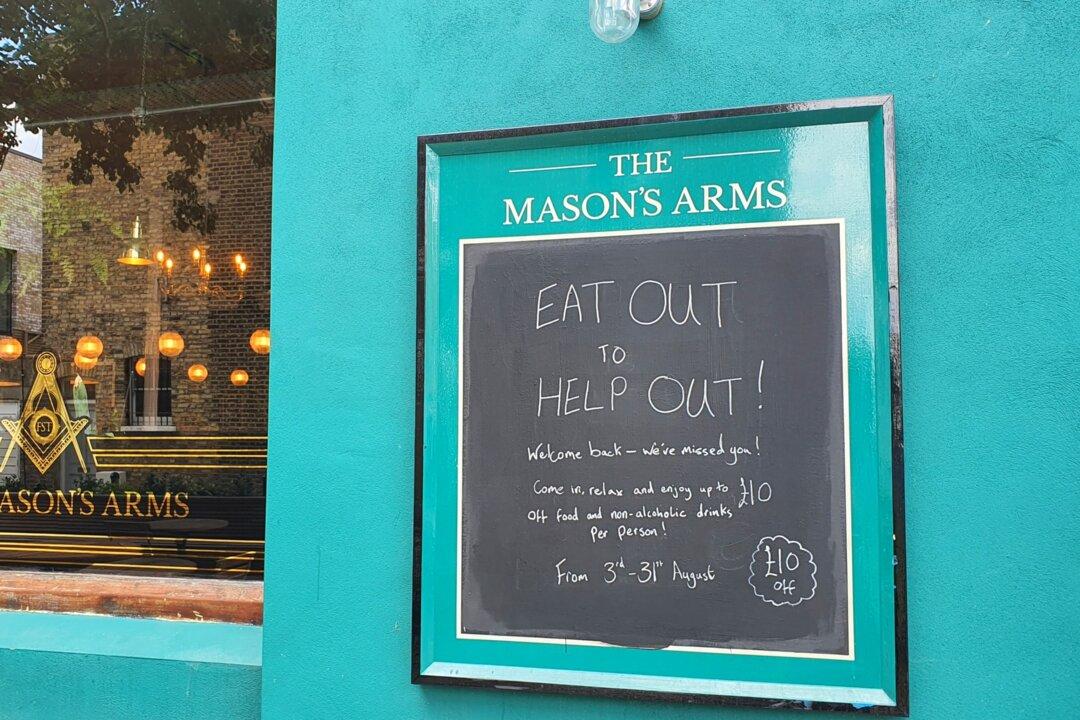 THE
MASON'S ARMS
EAT OUT
TO
HELP OUT!
Welcome back – we've missed you!
Come in, relax and enjoy up to £10
Off food and non-alcoholic drinks
Per Person!
From 3rd - 31st August
£10
Off
FST
ASON'S ARMS